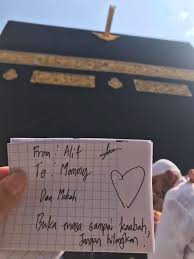 From : Alif
To : Mommy
Dari Mekah
Buka masa sampai kaabah,
jangan hilangkan!